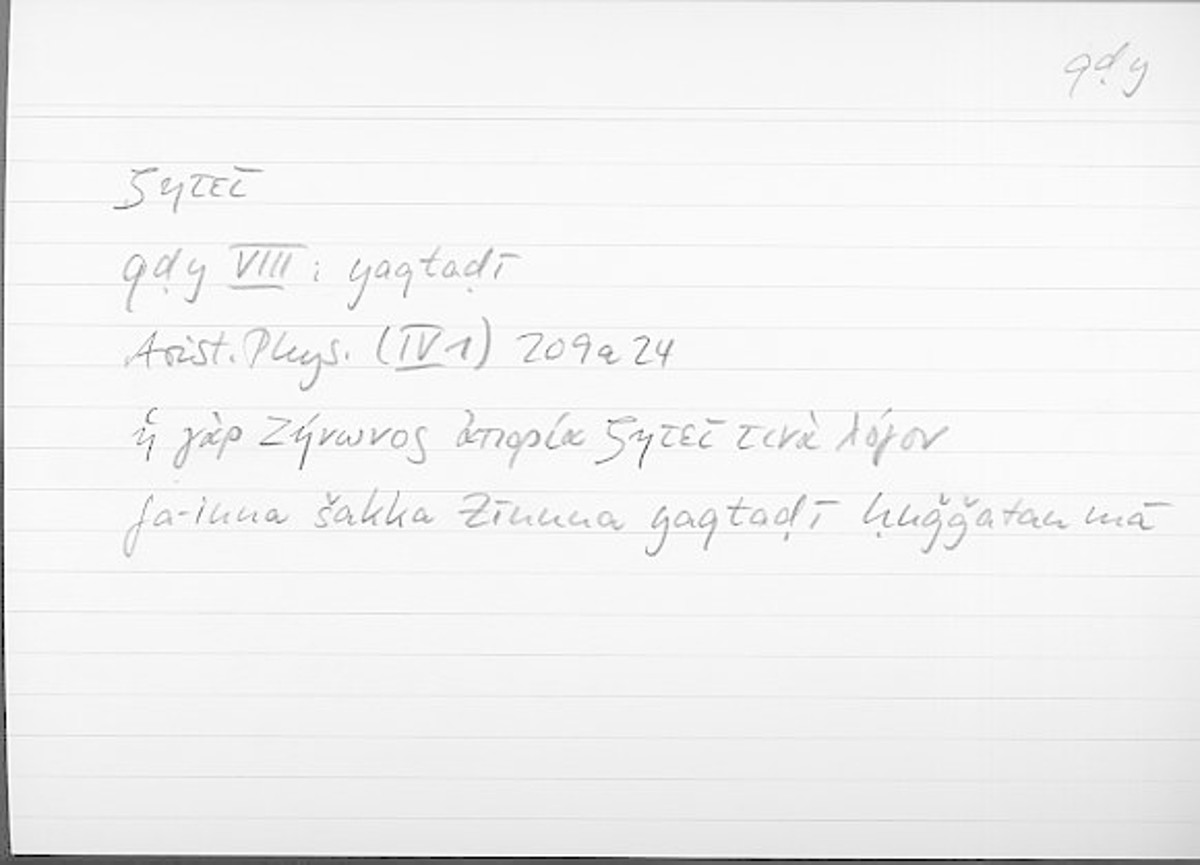 qḍy
ζητεῖ
qḍy VIII: yaqtaḍī
Arist. Phys. (IV 1) 209a24
ἡ γὰρ Ζήνωνος ἀπορία ζητεῖ τινὰ λόγον
fa-inna šakka Zīnuna yaqtaḍī ḥuǧǧatan mā